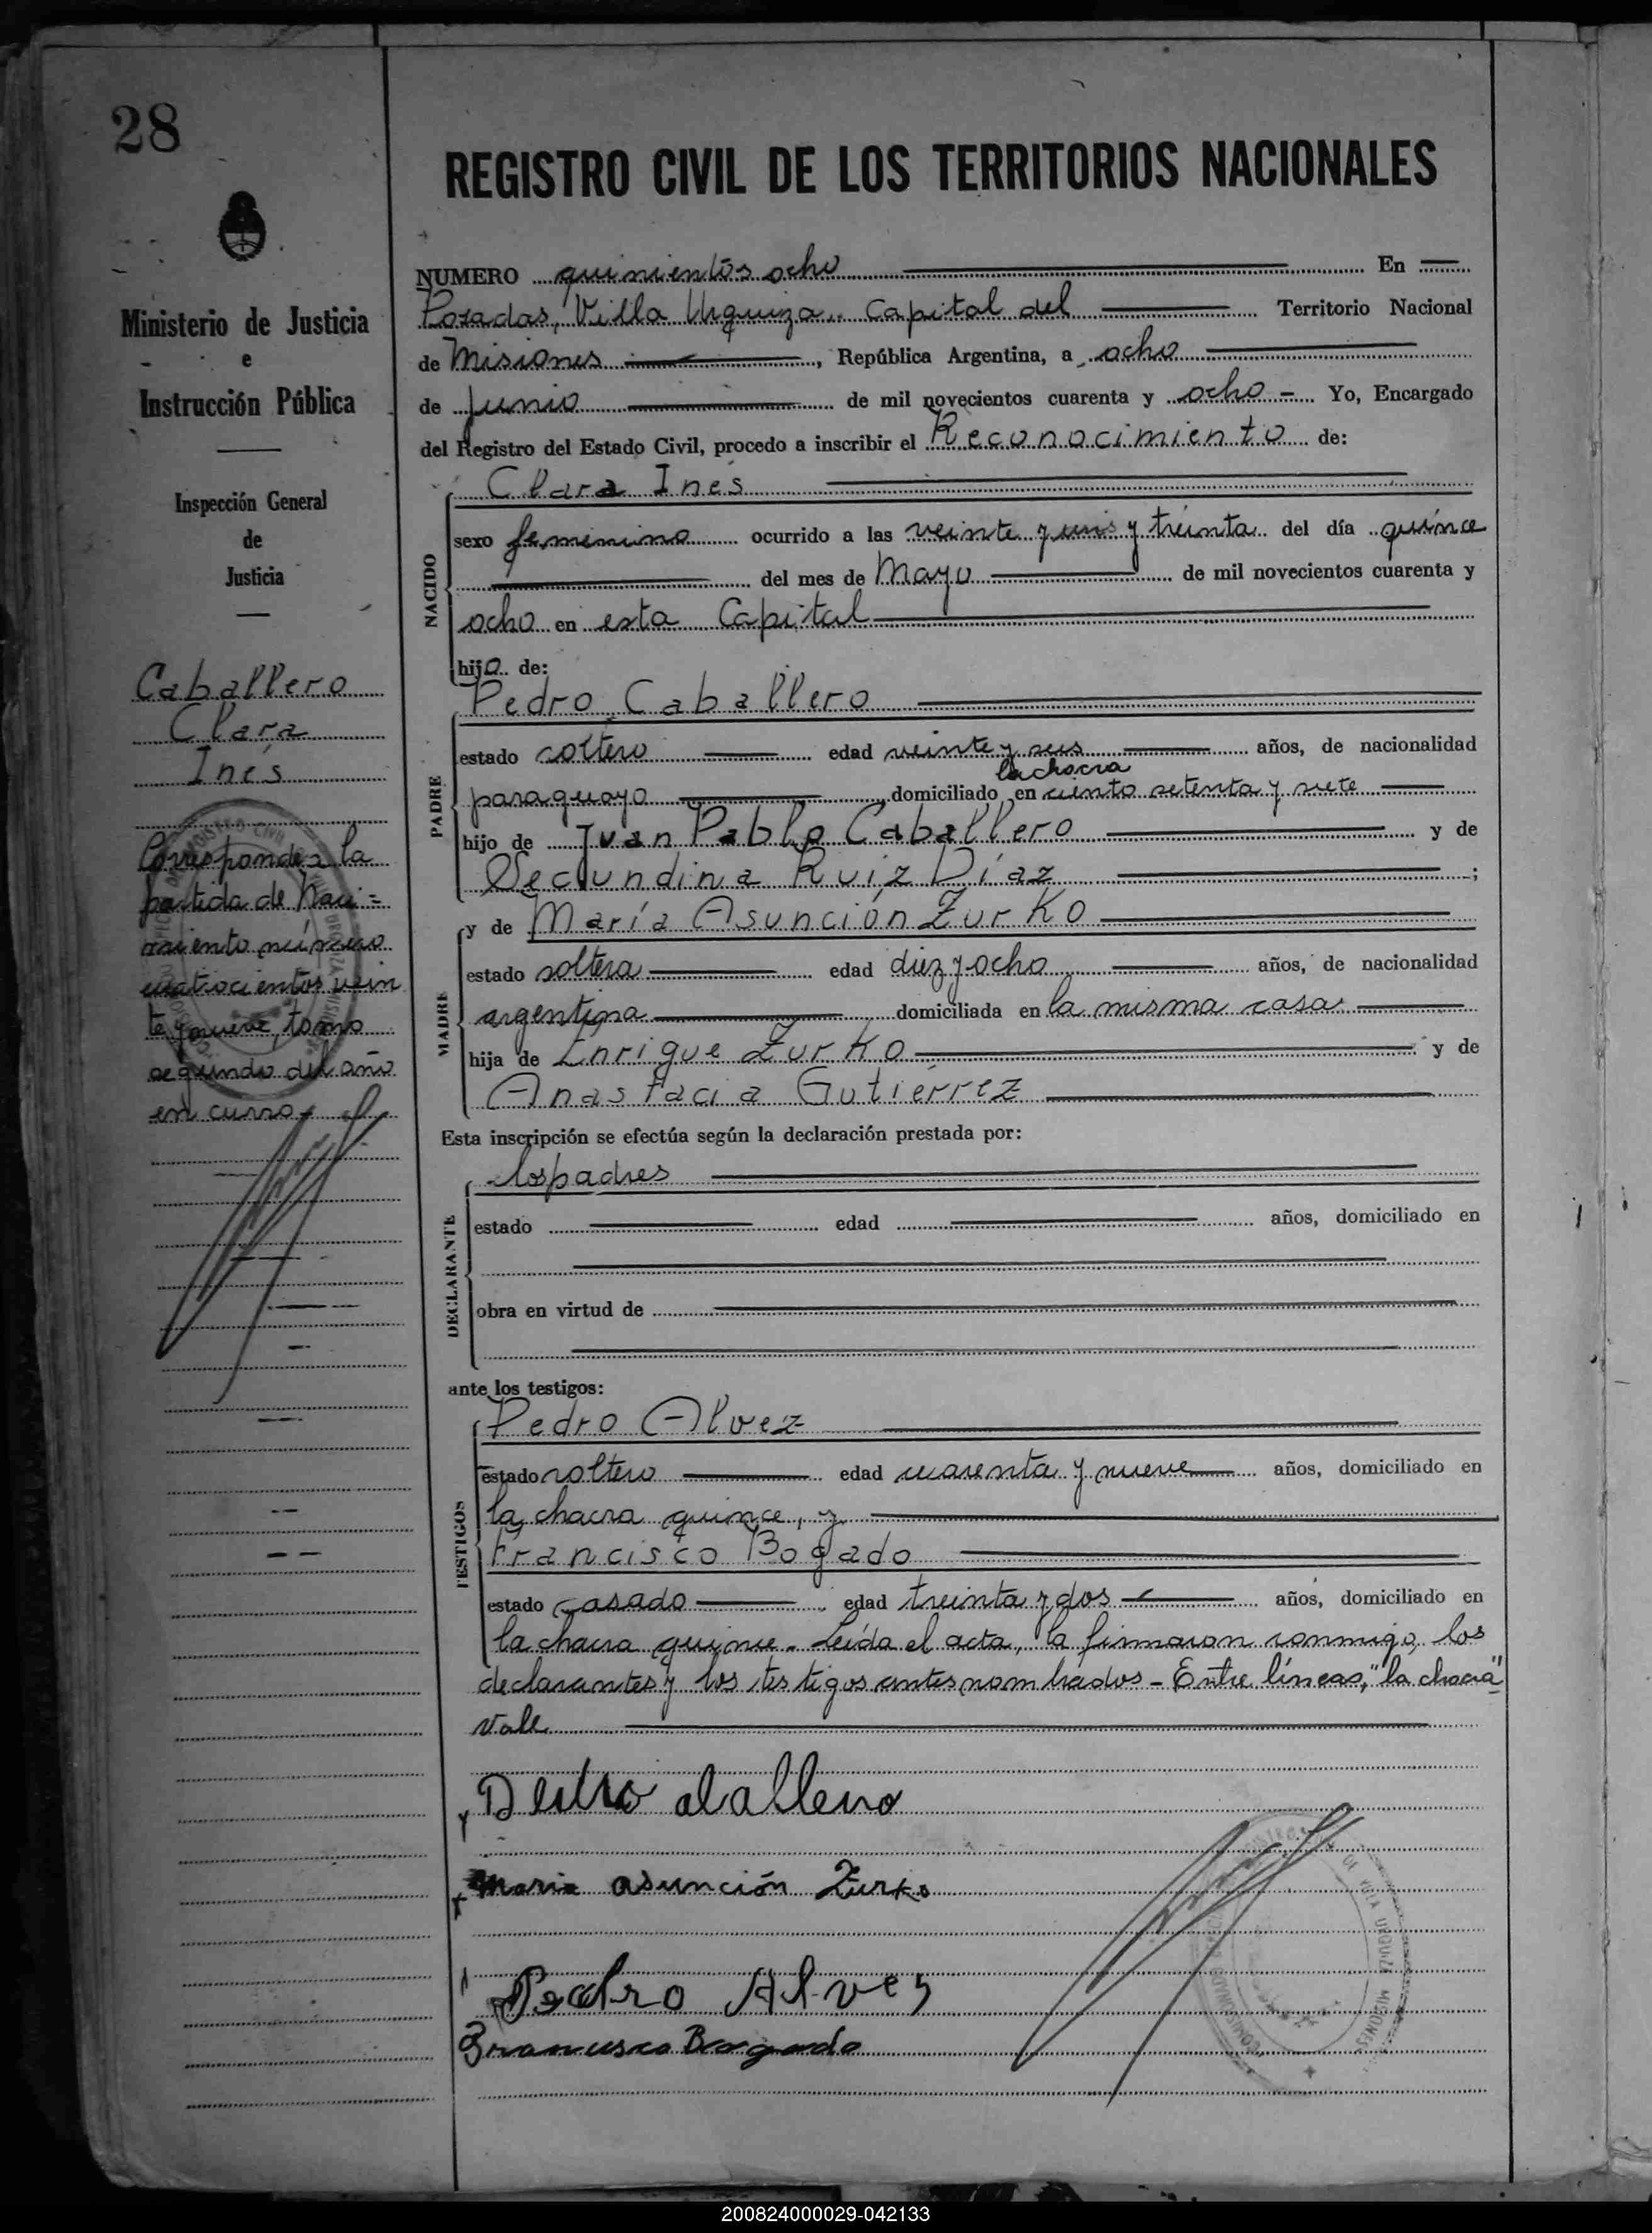 28
REGISTRO CIVIL DE LOS TERRITORIOS NACIONALES
Ministerio de Justicia
e
Instrucción Pública
Inspección General
de
Justicia
Caballero
Clara
Inés
Corresponde a la
partida de Naci=
miento número
cuatrocientos vein
te y nueve, tomo
segundo del año
en curso
NUMERO quinientos ocho En
Posadas, Villa Urquiza.. Capital del Territorio Nacional
de Misiones, República Argentina, a ocho
de Junio de mil novecientos cuarenta y ocho - Yo, Encargado
del Registro del Estado Civil, procedo a inscribir el Reconocimiento de:
NACIDO
Clara Inés
sexo femenino ocurrido a las veinte y uno y treinta del día quince
del mes de Mayo de mil novecientos cuarenta y
ocho en esta Capital
hija de:
PADRE
Pedro Caballero
estado soltero edad veinte y seis años, de nacionalidad
la chacra
paraguayo domiciliado en ciento setenta y siete
hijo de Juan Pablo Caballero y de
Secundina Ruiz Díaz ;
MADRE
y de María Asunción Zurko
estado soltera edad diez y ocho años, de nacionalidad
argentina domiciliada en la misma casa
hija de Enrique Zurko y de
Anastacia Gutiérrez
Esta inscripción se efectúa según la declaración prestada por:
DECLARANTE
los padres
estado edad años, domiciliado en
obra en virtud de
ante los testigos:
TESTIGOS
Pedro Alvez
estado soltero edad cuarenta y nueve años, domiciliado en
la chacra quince, y
Francisco Bogado
estado casado edad treinta y dos años, domiciliado en
la chacra quince. Leída el acta, la firmaron conmigo, los
declarantes y los testigos antes nombrados - Entre líneas, "la chacra"
Vale
Maria asunción Zurko
Pedro Alves
Francisco Bogado
200824000029-042133